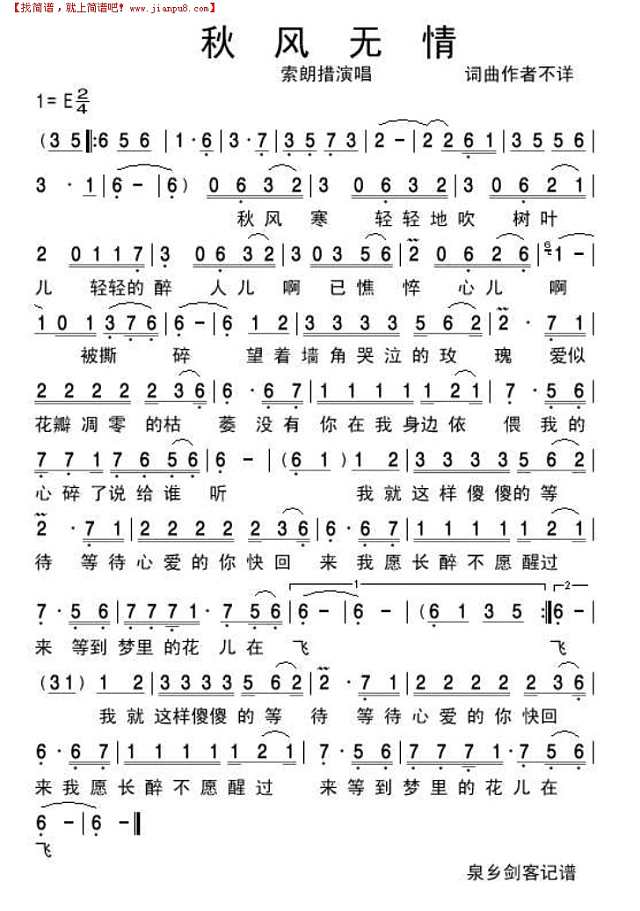 【找简谱，就上简谱吧！www.jianpu8.com】
秋风无情
索朗措演唱 词曲作者不详
1=E 2/4
(3 5 |: 6 5 6 | 1 · 6 | 3 · 7 | 3 0 5 7 | 3 5 3 5 | 2 - | 2 2 6 1 | 3 5 5 6 |
3 · 1 | 6 - | 6 ) 0 6 3 2 | 3 0 6 3 2 | 3 0 6 2 1 |
秋风 寒 轻轻地吹 树叶
2 0 1 1 7 | 3 0 6 3 2 | 3 0 3 5 6 | 2 0 6 2 6 | 1 - |
儿 轻轻的醉 人儿 啊 已憔 悴 心儿 啊
1 0 1 3 7 6 | 6 - | 6 1 2 | 3 3 3 3 5 6 2 | 2 · 7 1 |
被撕 碎 望着墙角哭泣的玫 瑰 爱似
2 2 2 2 2 3 6 | 6 · 6 7 | 1 1 1 1 1 2 1 | 7 · 5 6 |
花瓣凋零 的枯 萎 没有 你在我身边依 偎 我的
7 7 1 7 6 5 6 | 6 - | (6 1) 1 2 | 3 3 3 3 5 6 5 |
心碎了说给谁 听 我就这样傻傻的等
2 · 7 1 | 2 2 2 2 2 3 6 | 6 · 6 7 | 1 1 1 1 1 2 1 |
待 等待心爱的你快回 来 我愿长醉不愿醒过
7 · 5 6 | 7 7 7 1 7 5 6 | 6 - | 6 - | (6 1 3 5 :| 6 - |
来 等到梦里的花儿在 飞 飞
(3 1) 1 2 | 3 3 3 3 5 6 5 | 2 · 7 1 | 2 2 2 2 2 3 6 |
我就这样傻傻的等 待 等待心爱的你快回
6 · 6 7 | 1 1 1 1 1 2 1 | 7 · 5 6 | 7 7 7 1 7 5 6 |
来我愿长醉不愿醒过 来等到梦里的花儿在
6 - | 6 - ‖
飞
泉乡剑客记谱